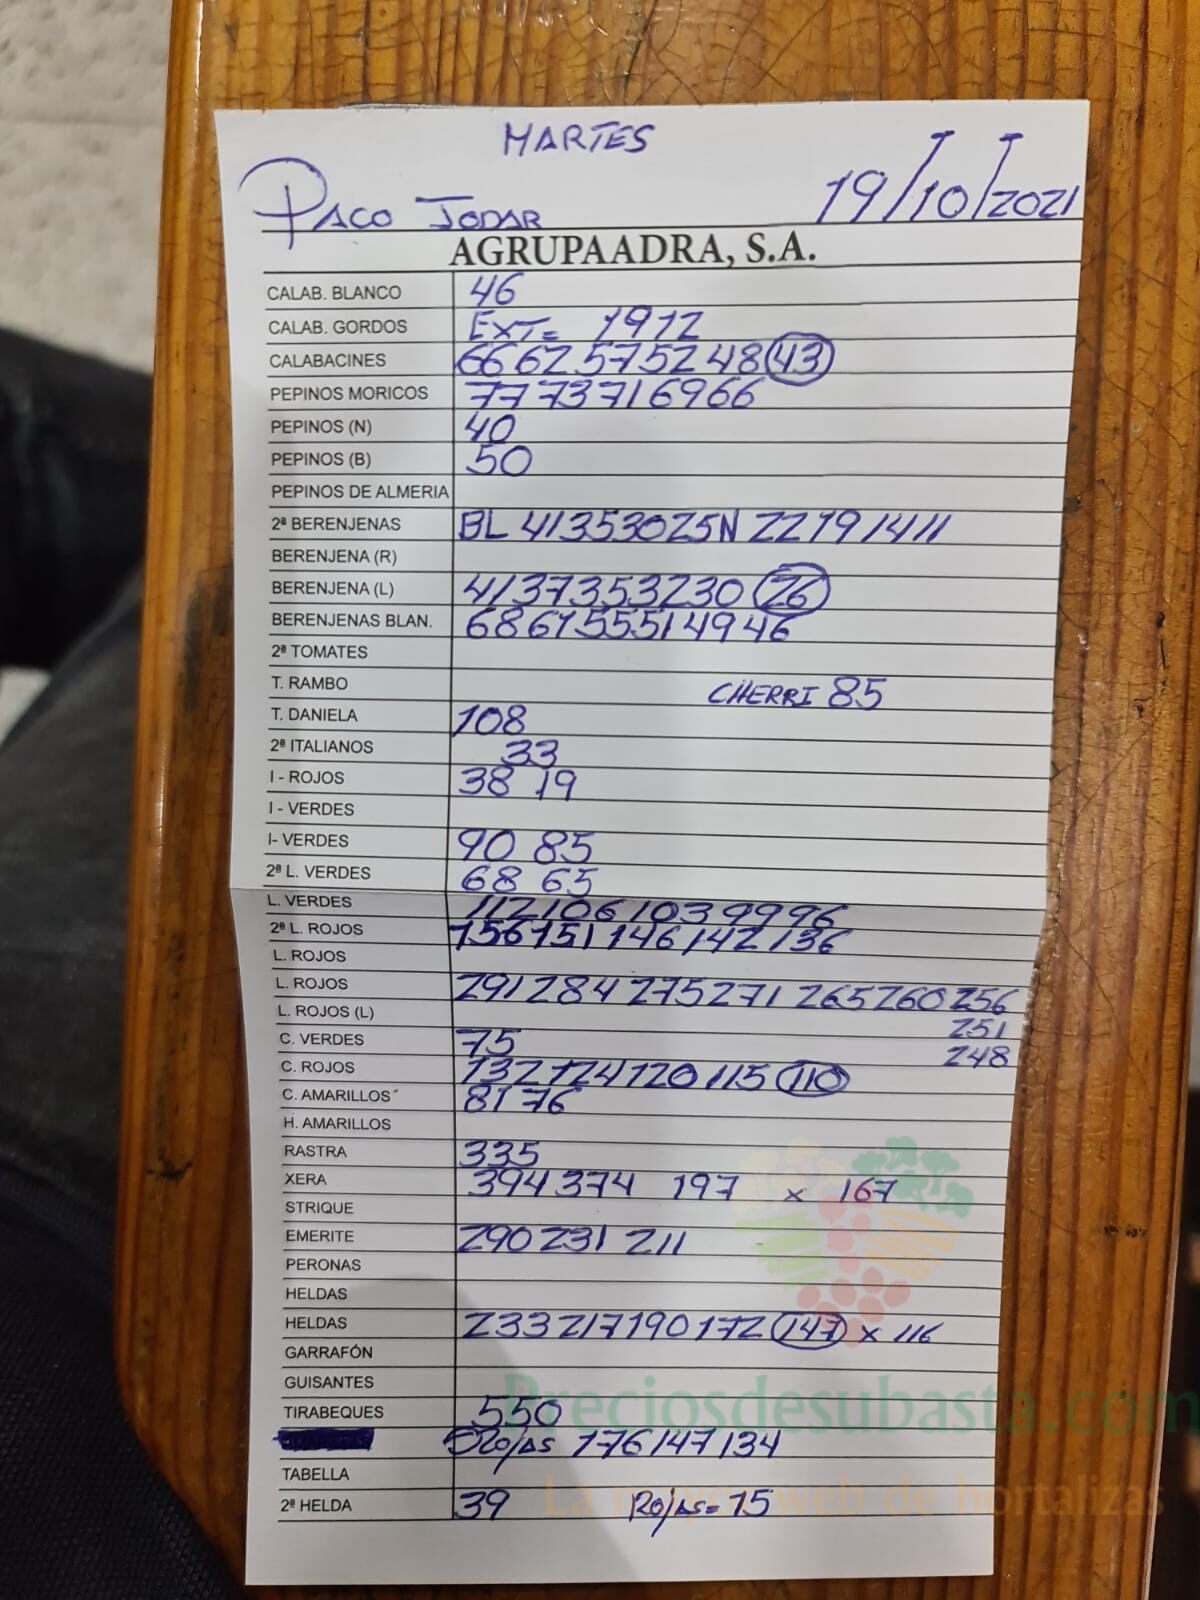 MARTES
PACO JODAR 19/10/2021
AGRUPAADRA, S.A.
CALAB. BLANCO 46
CALAB. GORDOS EXT= 1912
CALABACINES 66 62 57 52 48 43
PEPINOS MORICOS 77 73 71 69 66
PEPINOS (N) 40
PEPINOS (B) 50
PEPINOS DE ALMERIA
2ª BERENJENAS BL 41 35 30 25 N 22 19 14 11
BERENJENA (R)
BERENJENA (L) 41 37 35 32 30 26
BERENJENAS BLAN. 68 61 55 51 49 46
2ª TOMATES
T. RAMBO CHERRI 85
T. DANIELA 108
2ª ITALIANOS 33
I - ROJOS 38 19
I - VERDES
I- VERDES 90 85
2ª L. VERDES 68 65
L. VERDES 112 106 103 99 96
2ª L. ROJOS 156 151 146 142 136
L. ROJOS
L. ROJOS 291 284 275 271 265 260 256
L. ROJOS (L) 251
C. VERDES 75 248
C. ROJOS 132 124 120 115 110
C. AMARILLOS 81 76
H. AMARILLOS
RASTRA 335
XERA 394 374 197 x 167
STRIQUE
EMERITE 290 231 211
PERONAS
HELDAS
HELDAS 233 217 190 172 147 x 116
GARRAFÓN
GUISANTES
TIRABEQUES 550
Preciosdesubasta.com
ROJAS 176 147 134
TABELLA
La mayor web de hortalizas
2ª HELDA 39 ROJAS= 15